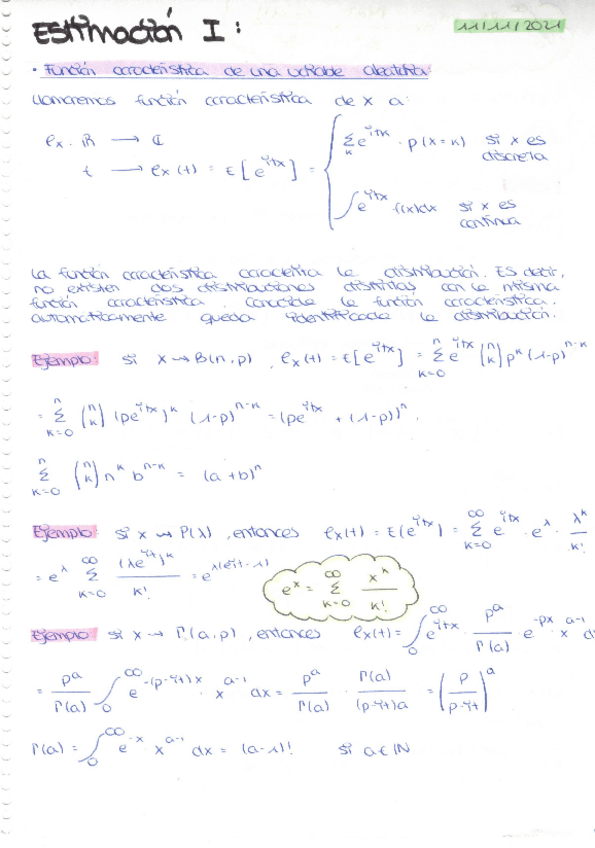 Estimación I:
11/11/2021
· Función característica de una variable aleatoria:
Llamaremos función característica de x a:
φx: ℝ → ℂ
t → φx(t) = E[e^{itx}] = { Σ_k e^{itk} · p(x=k) si x es discreta
∫ e^{itx} f(x)dx si x es continua
La función característica caracteriza la distribución. Es decir,
no existen dos distribuciones distintas con la misma
función característica. Conocida la función característica,
automaticamente queda identificada la distribución.
Ejemplo: si x → B(n,p), φx(t) = E[e^{itx}] = Σ_{k=0}^{n} e^{itx} (n k) p^k (1-p)^{n-k}
= Σ_{k=0}^{n} (n k) (pe^{itx})^k (1-p)^{n-k} = (pe^{itx} + (1-p))^n.
Σ_{k=0}^{n} (n k) n^k b^{n-k} = (a+b)^n
Ejemplo: si x → P(λ), entonces φx(t) = E(e^{itx}) = Σ_{k=0}^{∞} e^{itx} · e^{λ} · λ^k / k!
= e^{λ} Σ_{k=0}^{∞} (λe^{it})^k / k! = e^{λ(e^{it}-1)}
e^x = Σ_{k=0}^{∞} x^k / k!
Ejemplo: si x → Γ(a,p), entonces φx(t) = ∫_0^∞ e^{itx} · p^a / Γ(a) · e^{-px} x^{a-1} dx
= p^a / Γ(a) ∫_0^∞ e^{-(p-it)x} · x^{a-1} dx = p^a / Γ(a) · Γ(a) / (p-it)a = (p / p-it)^a
Γ(a) = ∫_0^∞ e^{-x} x^{a-1} dx = (a-1)! si a∈ℕ